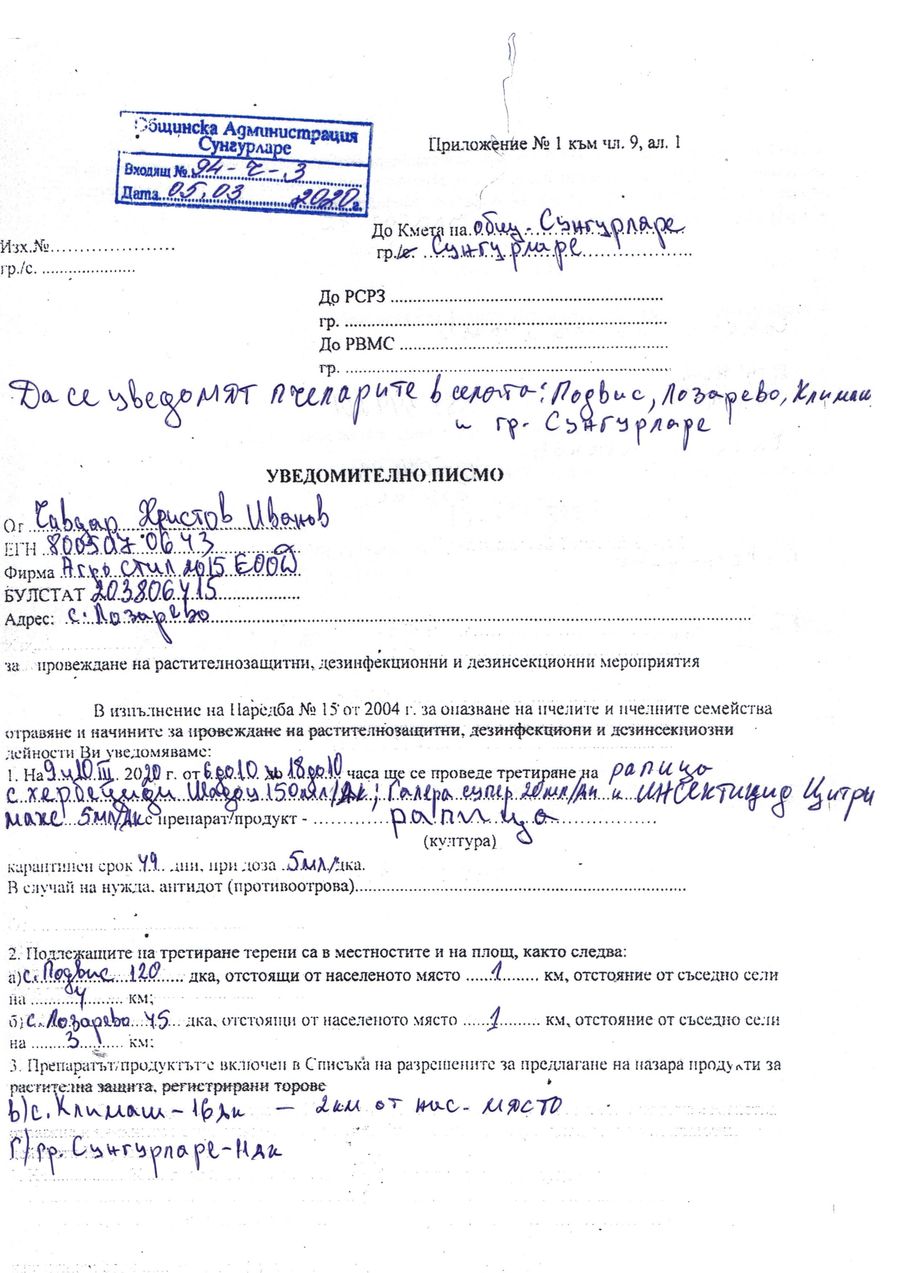 Общинска Администрация
Сунгурларе
Входящ №.94-Ч-3
Дата 05.03 2020г.
Приложение № 1 към чл. 9, ал. 1
До Кмета на общ. Сунгурларе
гр./с. Сунгурларе
Изх.№....................
гр./с. .....................
До РСРЗ .............................................................
гр. .........................................................................
До РВМС ............................................................
гр. .........................................................................
Да се уведомят пчеларите в селата: Подвис, Лозарево, Климаш
и гр. Сунгурларе
УВЕДОМИТЕЛНО ПИСМО
От Чавдар Христов Иванов
ЕГН 800507 0643
Фирма Агро стил 2015 ЕООД
БУЛСТАТ 203806415
Адрес: с. Лозарево
за провеждане на растителнозащитни, дезинфекционни и дезинсекционни мероприятия
В изпълнение на Наредба № 15 от 2004 г. за опазване на пчелите и пчелните семейства
отравяне и начините за провеждане на растителнозащитни, дезинфекциони и дезинсекциозни
дейности Ви уведомяваме:
1. На 9 и 10 III. 2020 г. от 6 до 10 18 до 10 часа ще се проведе третиране на рапица
с хербециди 150мл/дк; Галера супер 20мл/дк и инсектицид Цитри
макс 5мл/дк с препарат/продукт - рапица
(култура)
карантинен срок 49 дни, при доза 5мл/дка.
В случай на нужда, антидот (противоотрова)..........................................................................
2. Подлежащите на третиране терени са в местностите и на площ, както следва:
а) с. Подвис 120 дка, отстоящи от населеното място 1 км, отстояние от съседно сели
на 4 км;
б) с. Лозарево 45 дка, отстоящи от населеното място 1 км, отстояние от съседно сели
на 3 км:
3. Препаратът/продуктът е включен в Списъка на разрешените за предлагане на пазара продукти за
растителна защита, регистрирани торове
в) с. Климаш - 16дк - 2км от нас. място
г) гр. Сунгурларе-